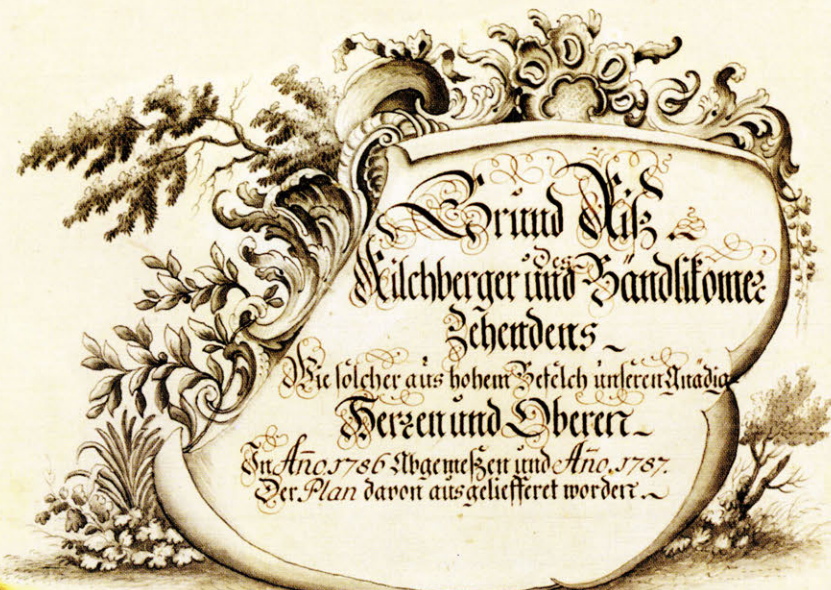 Grund Riß
des
Kilchberger und Bändlikomer
Zehendens
Wie solcher aus hohem Befelch unseren Gnädig
Herren und Oberen
In Año 1786 Abgemeßen und Año. 1787.
Der Plan davon ausgeliefferet worden